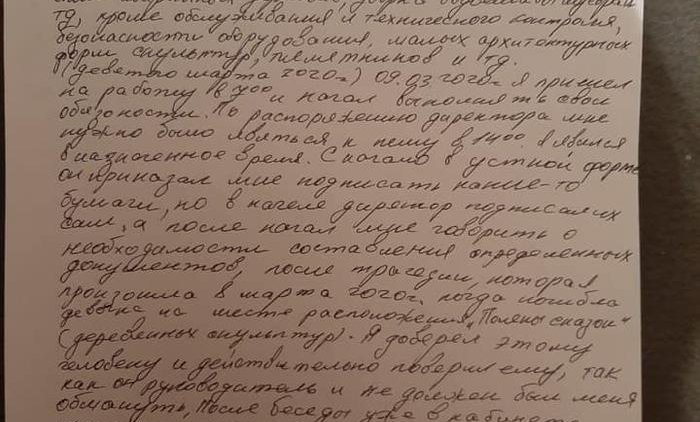 тд, кроме обслуживания и технического контроля,
безопасности оборудования, малых архитектурных
форм скульптур, памятников и тд.
(девятого марта 2020г.) 09.03.2020г. я пришел
на работу в 7 00 и начал выполнять свои
обязоности. По распоряжению директора мне
нужно было явяться к нему в 14 00. Я явился
в назначенное время. С начало в устной форме
он приказал мне подписать какие-то
бумаги, но в начеле директор подписал их
сам, а после начал мне говорить о
необходимости составления определенных
документов, после трагедии, которая
произошла 8 марта 2020г. когда погибла
девочка на месте расположения „Поляны сказок"
(деревянных скульптур). Я доверял этому
человеку и действительно поверил ему, так
как он руководитель и не должен был меня
обмануть. После беседы уже в кабинете